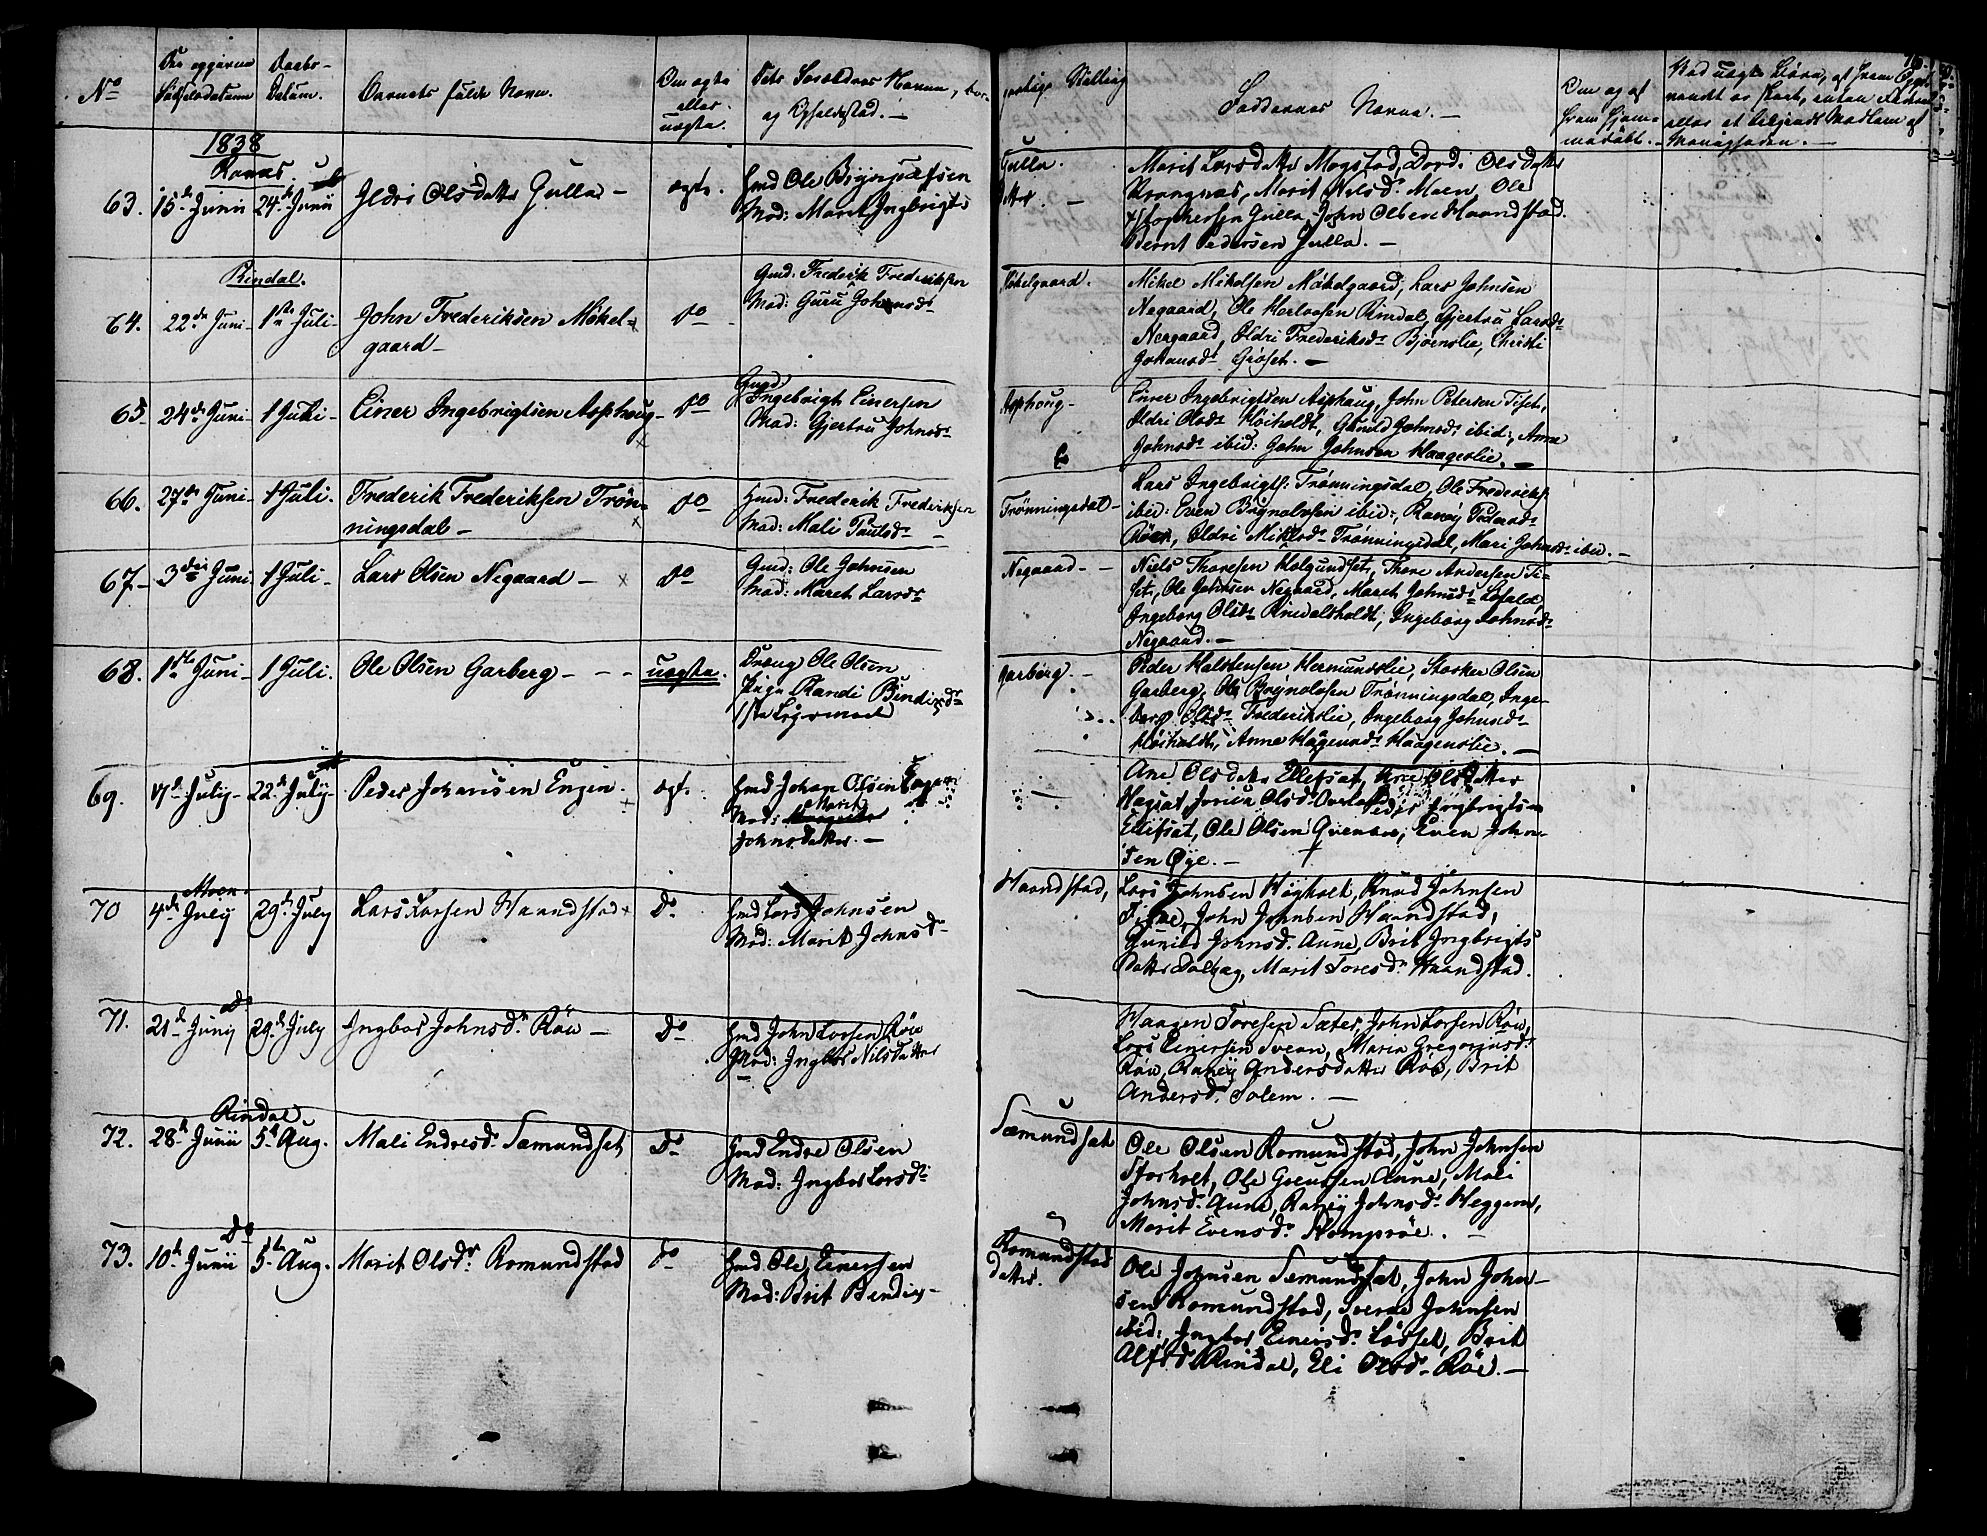 No
Den opgivne
Fødselsdatum
Daabs-
Datum.
Barnets fulde Navn.
Om ægte
eller
uægte.
Dets Forældres Navne, bor-
og Opholdssted. —
gerlige Stilling
Faddernes Navne. —
Om og af
hvem hjem-
medøbt. -
1838
Ranæs.
63. 15de Junii 24de Junii Ildri Olsdatter Gulla — ægte.
Gmd Ole
Mod: Marit Ingbrigts
Gulla.
dtter. —
Marit Larsdatter Mogstad, Dordi Olsdatter
Krangnæs, Marit Nilsd. Moen, Ole
Gulla, John Olsen Haandstad
Bernt Pedersen Gulla. —
Rindal.
64. 22de Juni- 1ste Juli- John Frederiksen Møkel-
gaard— Do
Gmd: Frederik Frederiksen
Mod: Guru Johnsdr
Møkelgaard.
Mikel Mikelsen Møkelgaard, Lars Johnsen
Negaard, Ole Herlovsen Rindal, Gjertru Larsdr
Nergaard, Ildri Frederiksdr Bjørnslie, Christi
Johansdr Grøset. —
65- 24de Juni- 1 Juli- Einer Ingebrigtsen Asphoug- Do
Gmd
Ingebrigt Einersen
Mod: Gjertru Johnsdr
Asphoug-
Einer Ingebrigtsen Asphaug, John Petersen Tiset,
Ildri Olsdr Høiholdt, Gunild Johnsdr ibid:, Anne
Johnsdr ibid: John Johnsen Haagenslie. —
66. 27de Juni- 1 Juli. Frederik Frederiksen Trøn-
ningsdal— Do
Gmd: Frederik Frederiksen
Mod: Mali Paulsdr —
Trønningsdal-
Lars Ingebrigts: Trønningsdal, Ole Frederiks:
ibid: Even Brynolvsen ibid:, Ranøy Pedersdr
Røen, Ildri Mikelsdr Trønningsdal, Mari Johnsdr ibid. —
67- 3die Juni 1 Juli- Lars Olsen Negaard — Do
Gmd: Ole Johnsen
Mod: Maret Larsdr
Negaard- -
Niels Thoresen Holgundset, Thore Andersen Ti-
set, Ole Johnsen Negaard, Maret Johnsdr Løfald,
Ingeborg Olsdr Rindalsholdt, Ingeborg Johnsdr
Negaard. —
68. 1ste Juni- 1 Juli. Ole Olsen Garberg - - - uægte.
Dreng Ole Olsen
Pige Randi Bendixdr
1ste Leiermaal
Garberg. -
Peder Halstensen Hermundslie, Størker Olsen
Garberg, Ole Brynolvsen Trønningsdal, Inge-
borg Olsdr Frederikslie, Ingeborg Johnsdr
Høiholdt, Anne Haagensdr Haagenslie. —
69. July- 22de July- Peder Johansen Engen. ægte.
Gmd Johan Olsen Engen
Mod: Marit
Johnsdatter. —
Ane Olsdatter Ellefsæt, Ane Olsdatter
Hagsæt, Peder Ingbrigtsen
Ellefsæt, Ole Olsen Even John-
sen Øye. —
Moen
70 4de July 29de July Lars Larsen Haandstad Do
Gmd Lars Johnsen
Mod: Marit Johnsdr
Haandstad,
Lars Johnsen Høyholt, Knud Johnsen
John Johnsen Haandstad,
Gunild Johnsd. Aune, Brit Ingbrigts
datter Marit Toresdr Haandstad.
Do
71. 21de Juny 29de July Ingbor Johnsdr Røu — Do
Gmd John Larsen Røu
Mod: Ingbor Nilsdatter
Haagen Toresen Sæter, John Larsen Røu,
Lars Einersen Sveen, Maria Gregoriusdr
Røu, Raney Andersdatter Røe, Brit
Andersd. Solem. —
Rindal
72. 28de Junii 5te Aug. Mali Endresdr Sæmundsæt Do
Gmd Endre Olsen
Mod: Ingbor Larsdr
Sæmundsæt
Ole Olsen Romundstad, John Johnsen
Storholt, Ole Aune, Mali
Johnsdr Aune, Raney Johnsdr Heggem,
Marit Evensdr —
Do
73. 10de Junii 5te Aug. Marit Olsdr Romundstad do
Gmd Ole Einersen
Mod: Brit Bendix-
Romundstad
datter.
Ole Johnsen Semundsæt, John John-
sen Romundstad, Sverke Johnsen
ibid:, Ingbor Einersdr Løfset, Brit
Rindal, Eli Olsdr Røe. —